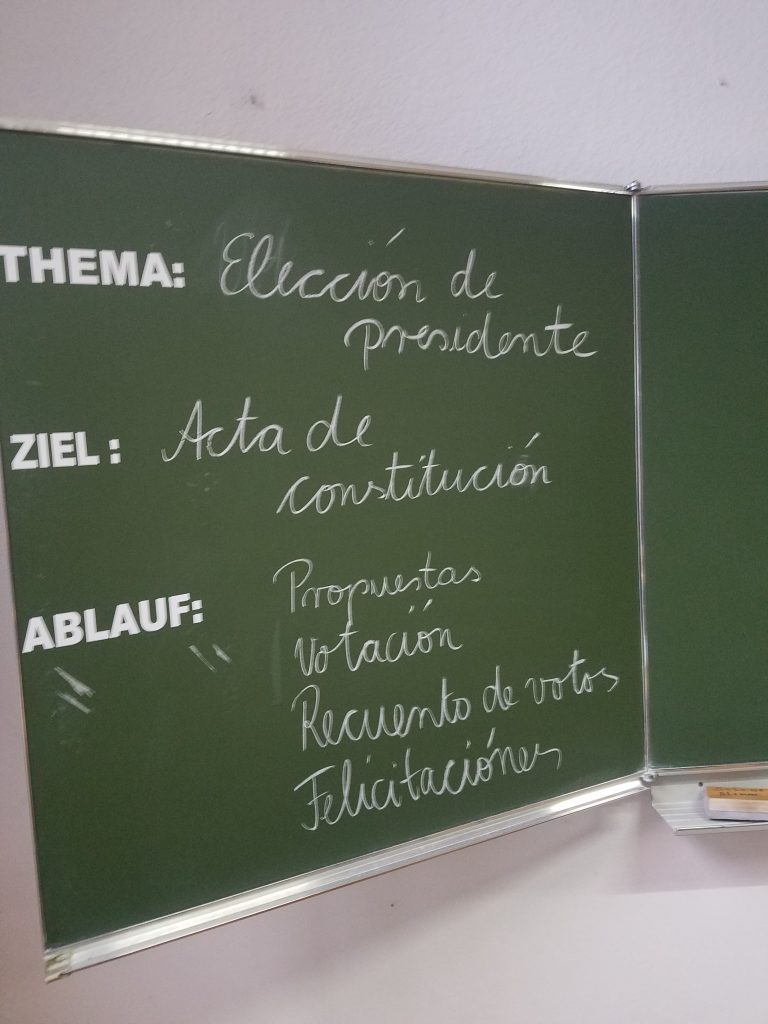 THEMA: Elección de
presidente
ZIEL: Acta de
constitución
ABLAUF: Propuestas
Votación
Recuento de votos
Felicitaciónes